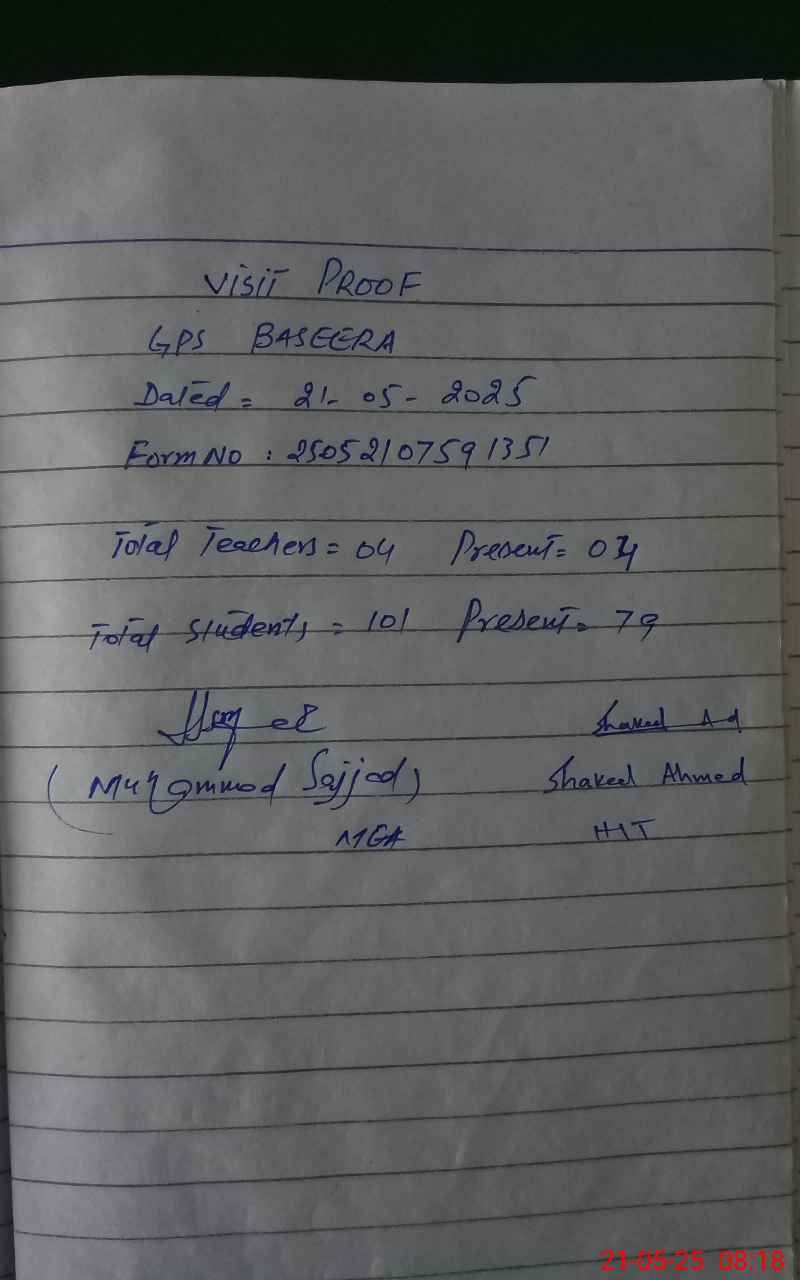 VISIT PROOF
GPS BASEERA
Dated = 21-05-2025
Form No : 25052107591351
Total Teachers = 04 Present = 04
Total Students = 101 Present = 79
Shakeel Ad
(Muhammad Sajjad) Shakeel Ahmed
MEA HT
21-05-25 08:18